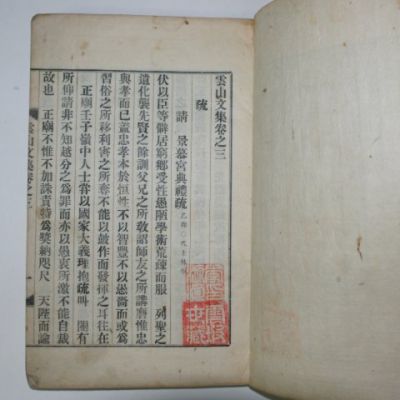 雲山文集卷之三
疏
請 景慕宮典禮疏
伏以臣等僻居窮鄉受性愚陋學術荒疎而服 列聖之
遺化襲先賢之餘訓父兄之所敎詔師友之所講磨惟忠
與孝而已蓋忠孝本於恒性不以智豐不以愚嗇而或爲
習俗之所移利害之所奪不能以作而發揮之耳往在
正廟壬子嶺中人士嘗以國家大義理抱疏叫 閤有
所仰請非不知越分之爲罪而亦以愚衷所激不能自裁
故也 正廟不惟不加誅責特爲奬納咫尺 天陛而諭
雲山文集卷之三